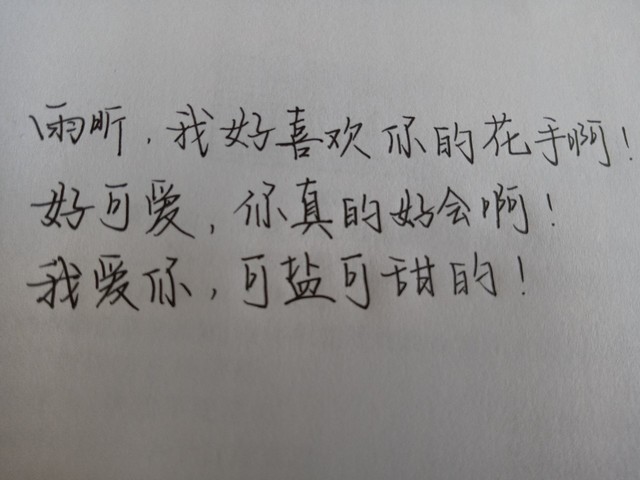 雨昕，我好喜欢你的花手啊！
好可爱，你真的好会啊！
我爱你，可盐可甜的！